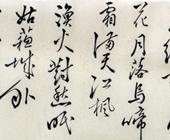 花月落烏啼
霜滿天江楓
漁火對愁眠
姑蘇城外